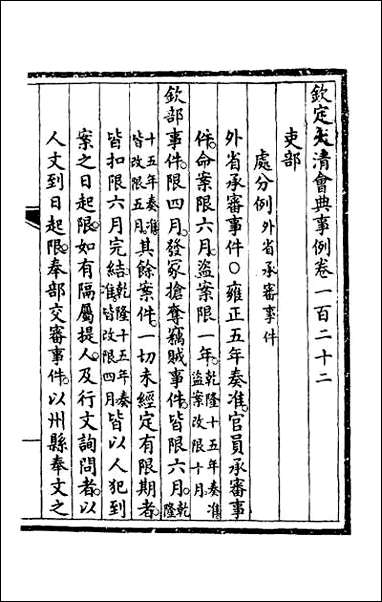 欽定大清會典事例卷一百二十二
吏部
處分例外省承審事件
外省承審事件○雍正五年奏准官員承審事
件命案限六月盜案限一年乾隆十五年奏準盜案改限十月
欽部事件限四月發冢搶奪竊賊事件皆限六月乾隆
十五年奏準皆改限五月其餘案件一切未經定有限期者
皆扣限六月完結乾隆十五年奏準皆改限四月皆以人犯到
案之日起限如有隔屬提人及行文詢問者以
人文到日起限奉部交審事件以州縣奉文之